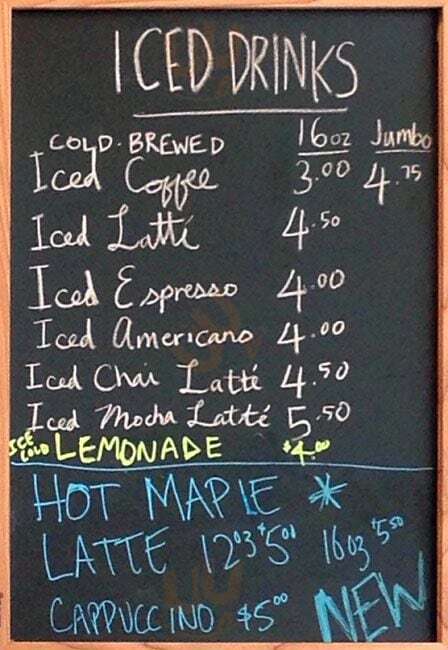 ICED DRINKS
COLD-BREWED 16oz Jumbo
Iced Coffee 3.00 4.75
Iced Latté 4.50
Iced Espresso 4.00
Iced Americano 4.00
Iced Chai Latté 4.50
Iced Mocha Latté 5.50
ICE COLD LEMONADE $4.00
HOT MAPLE *
LATTE 12oz $5.00 16oz $5.50
CAPPUCCINO $5.00 NEW